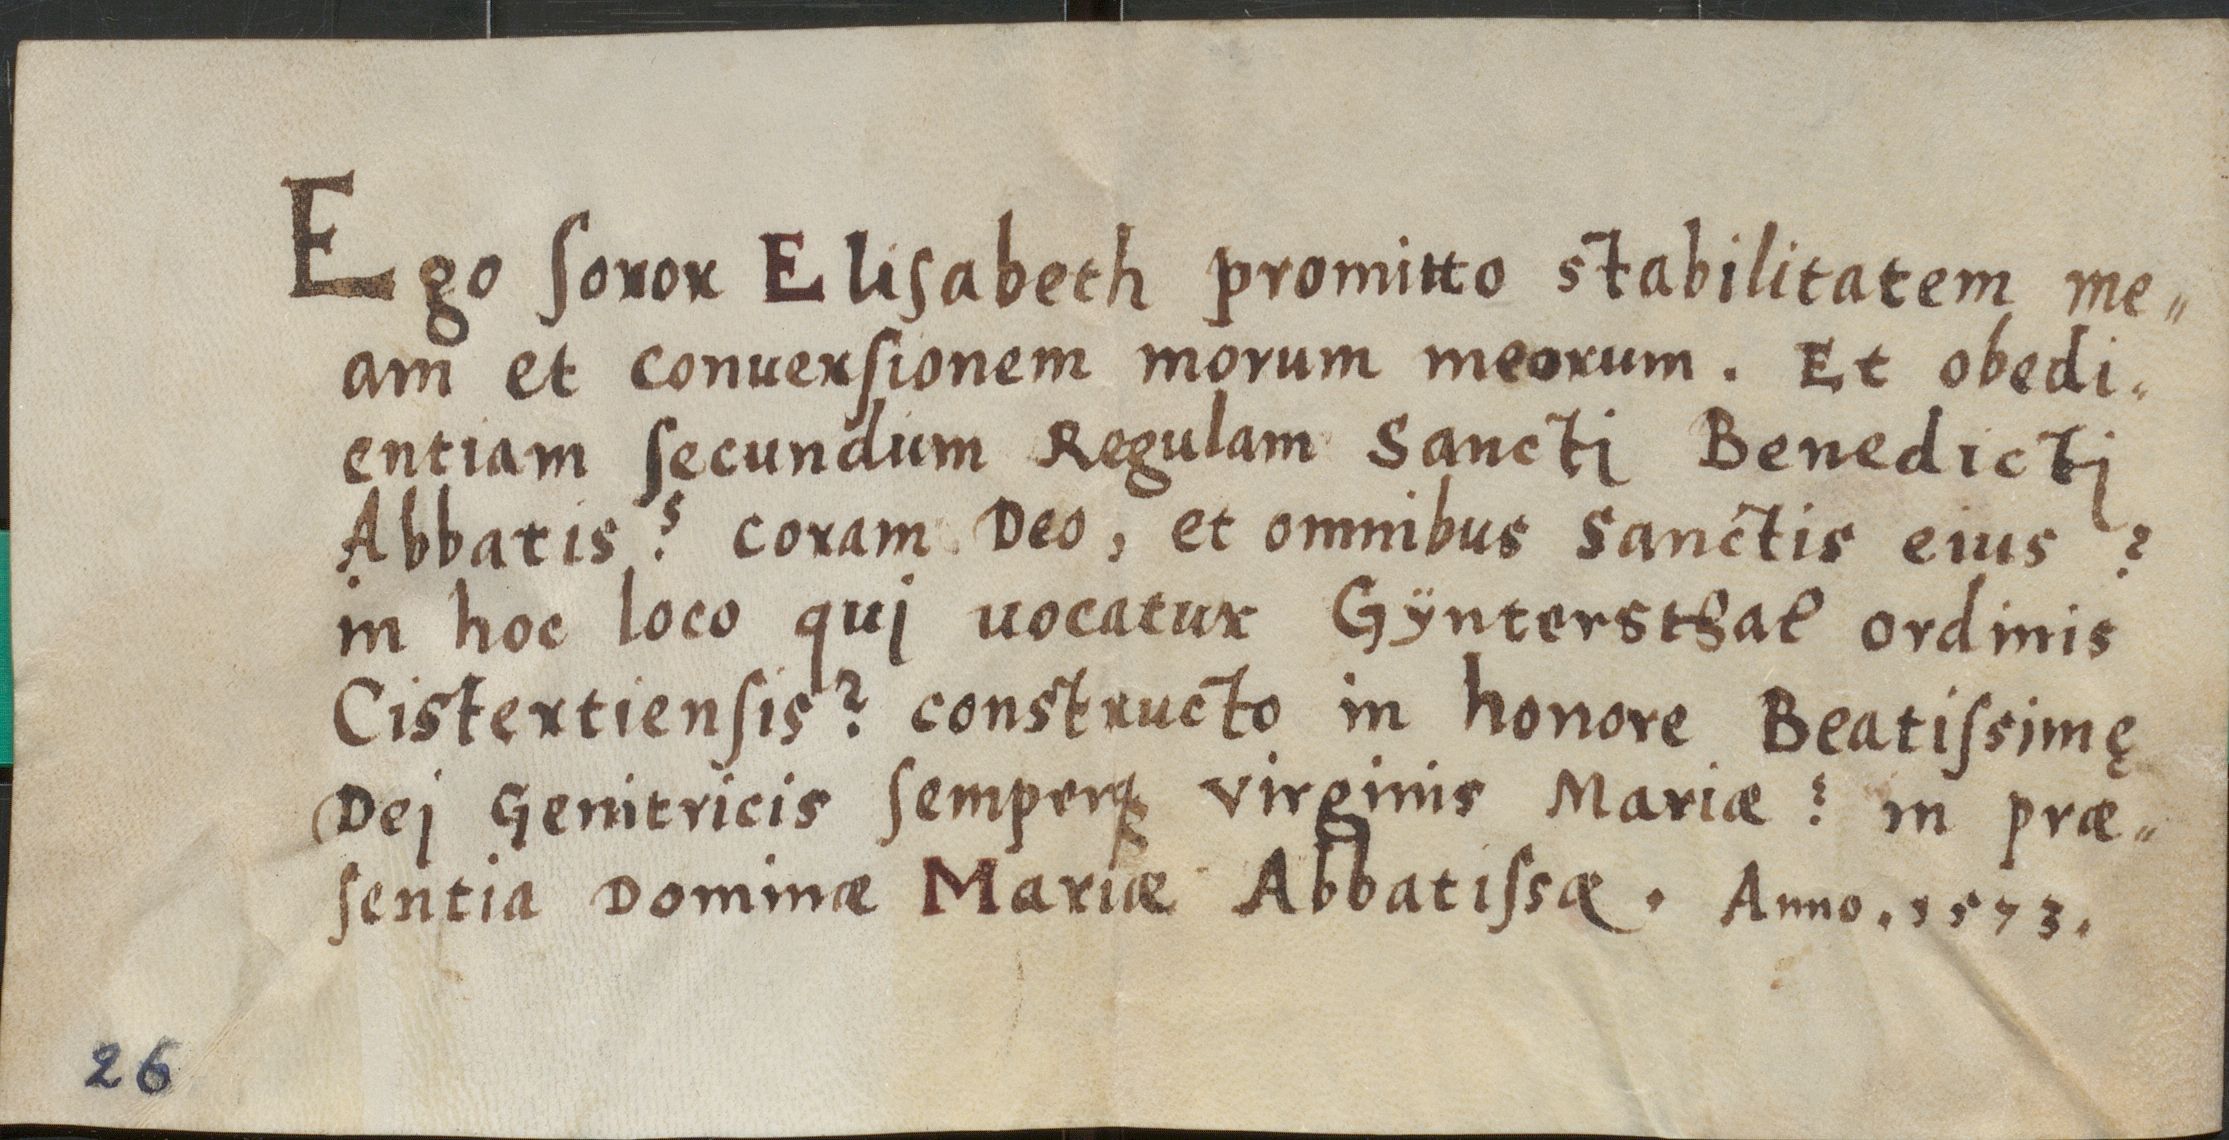 Ego ſoror Eliſabeth promitto stabilitatem me„
am et conuerſionem morum meorum. Et obedi„
entiam ſecundum Regulam Sanctj Benedictj
Abbatis? coram Deo, et omnibus Sanctis eius?
in hoc loco quj uocatur Gÿntersthal ordinis
Cistertienſis? constructo in honore Beatiſsimę
Dej Genitricis ſemperq́ꝫ virginis Mariæ? in præ„
ſentia Dominæ Mariæ Abbatiſsæ. Anno. 1573.
26